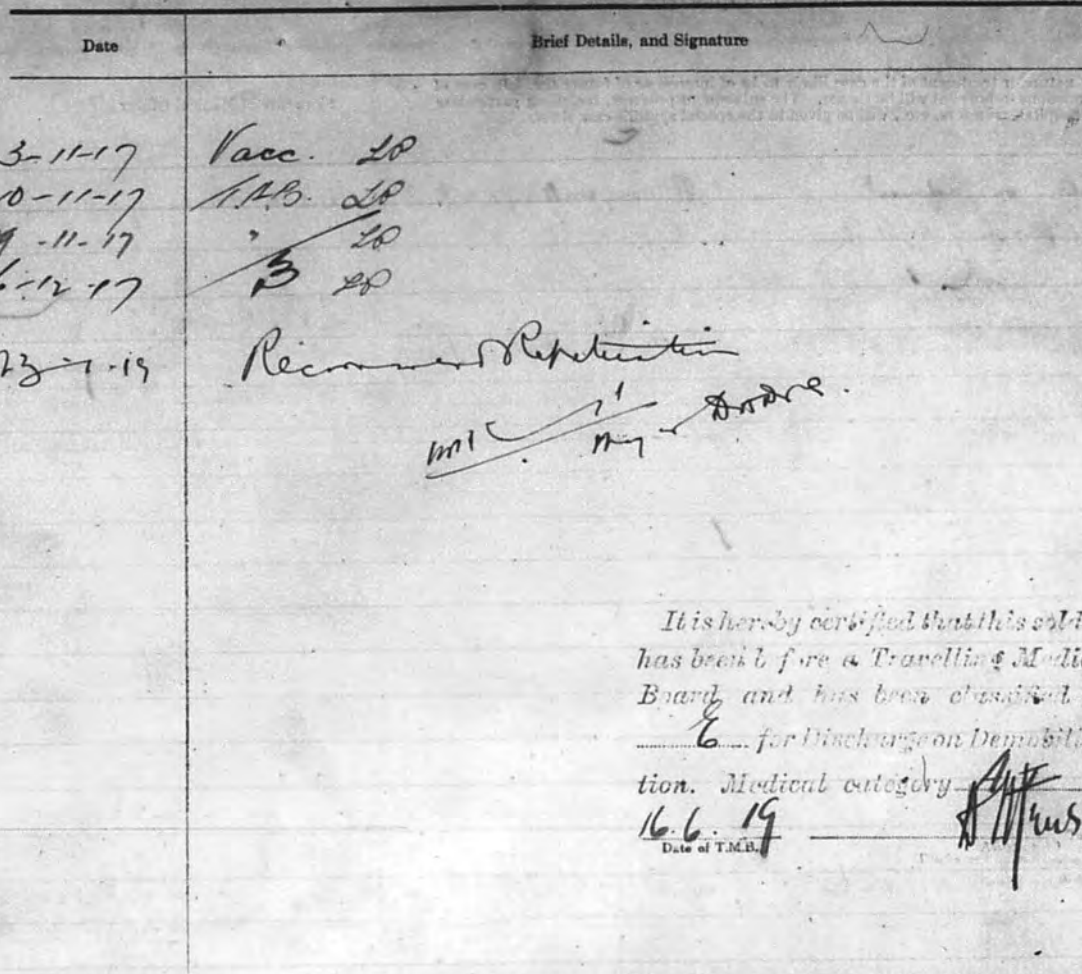 Date Brief Details, and Signature
3-11-17 Vacc. LP
0-11-17 T.A.B. LP
9-11-17 " LP
6-12-17 B LP
23-7-19 Recommend Repatriation
Major
It is hereby certified that this sold
has been before a Travelling Medic
Board and has been classified
E for Discharge on Demobiliz
tion. Medical category
16.6.19
Date of T.M.B.